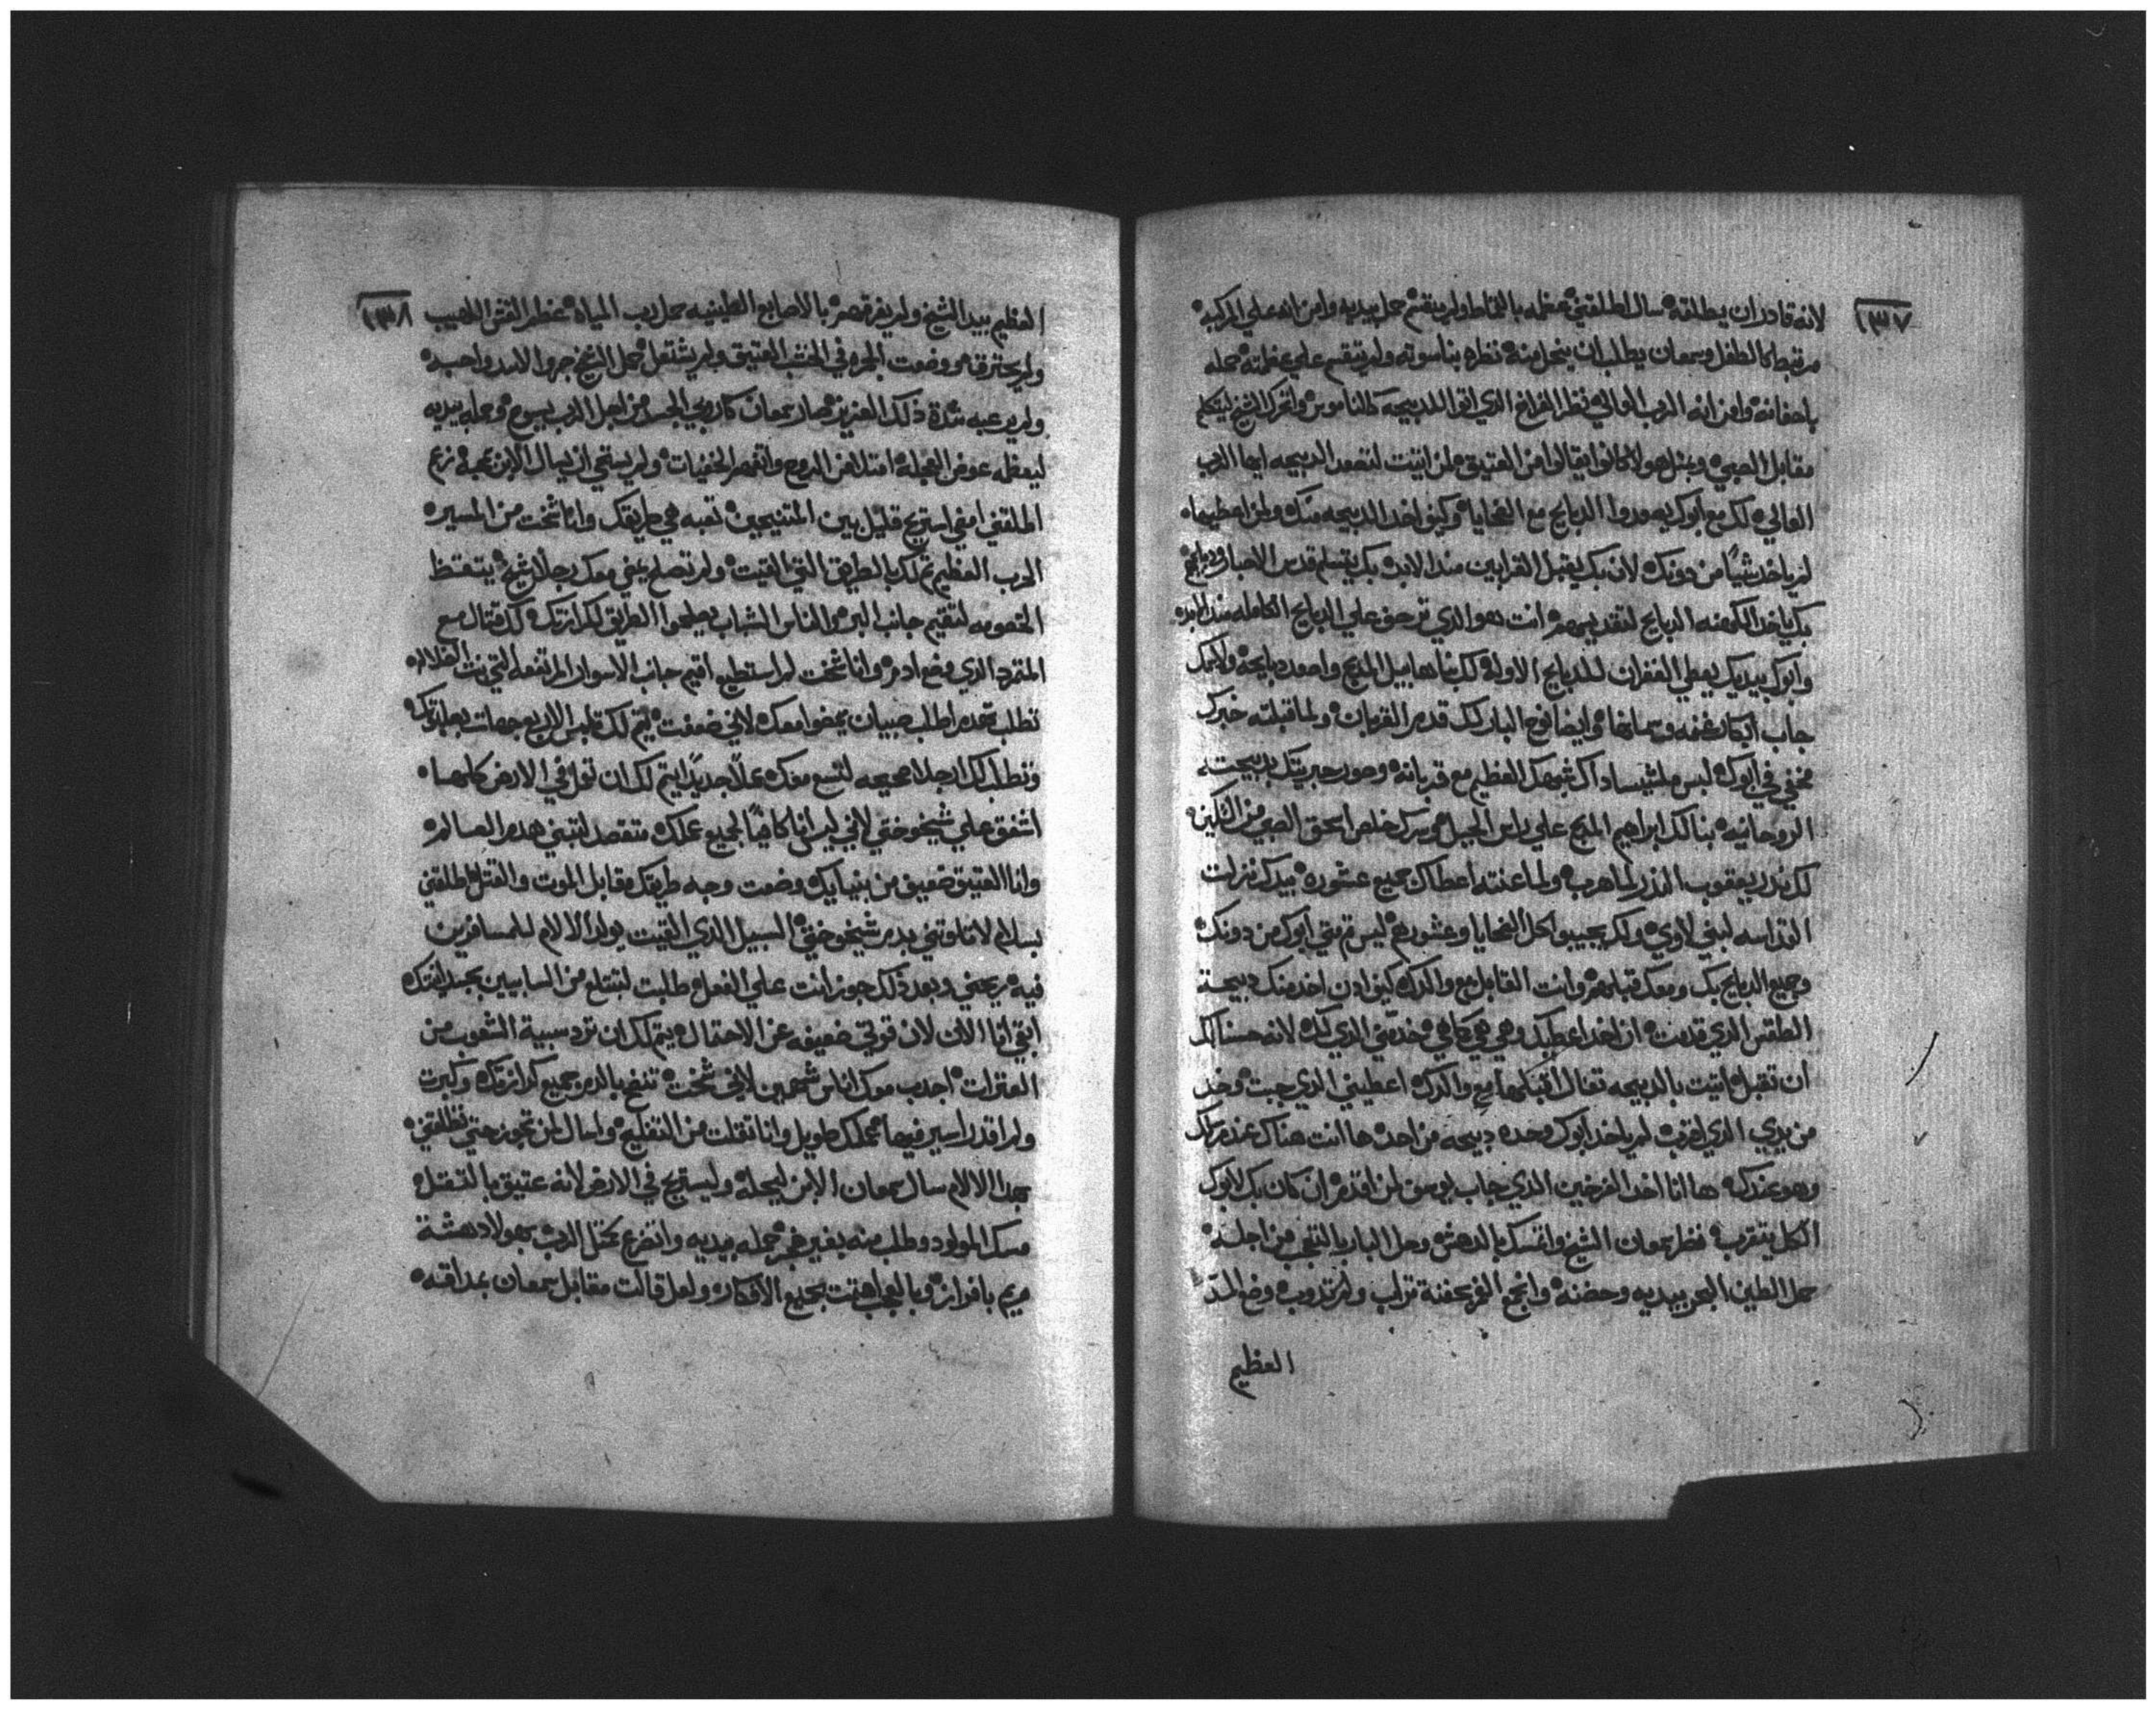 ١٣٧
لانه قادر ان يطلقه سال اطلقني عظمه بالقماط ولم ينقسم حمل بيديه وامن انه علي المركبه
مرتبط كالطفل وسمعان يطلب ان ينحل منه نظره بناسوته ولم ينقسم علي عظمته حمله
باحضانه وامن انه الرب العالي نظر الفراخ الذي اتوا للدبيحه كالناموس واتحرك الشيخ ليتكلم
مقابل الصبي وبمثل هولا كانوا يقالوا من العتيق لمن اتيت لتصعد الدبيحه ايها الرب
العالي لك مع ابوك يصعدوا الدبايح مع الضحايا وكيف اخد الدبيحه منك ولمن اعطيها
لم ياخد شيئًا من دونك لان بك يقبل القرابين مند الابد بك يتسلم قدس الاحبار ودبايحهم
بك ياخد الكهنه الدبايح لتقديسهم انت هو الذي ترحف علي الدبايح الكامله مند الابد
وابوك بيديك يعطي الغفران للدبايح الاوله لك بنا هابيل المدبح واصعد دبايحه ولاسمك
جاب ابكار غنمه وسمانها وايضا نوح البار لك قدم القربان ولما قبلته خبرك
مخفي في ابوك لبس ملشيساداق شبهك العظيم مع قربانه وصور حبريتك بدبيحته
الروحانيه بنا لك ابراهيم المدبح علي راس الجبل وسرك خلص اسحق الصبي من السكين
لك ندر يعقوب الندر لما هرب ولما اعنته اعطاك جميع عشوره بيدك نزلت
القداسه لبني لاوي ولك يجيبوا كل الضحايا وعشورهم ليس قربني ابوك من دونك
وجميع الدبايح بك ومعك قبلهم وانت القابل مع والدك كيف ادن اخد منك دبيحة
الطقس الذي قدمت ان اخد اعطيك وهي هي كما هي خدمتي الذي لك لانه حسنا لك
ان تقبل اتيت بالدبيحه تعال اقبلها مع والدك اعطيني الذي جبت وخد
من يدي الذي لقربت لم ياخد ابوك وحده دبيحه من احد ها انت هناك عند مرسلك
وهو عندك ها انا اخد الفرخين الذي جاب يوسف لمن اقدم ان كان بك لابوك
الكل يتقرب نظر سمعان الشيخ وانمسك بالدهش وحل البار بالتعجب من اجله
حمل الطين البحر بيديه وحضنه وانجمع الفرعفنة تراب ولم تدوب وضع المدّ
العظيم
١٣٨
العظيم بيد الشيخ ولم يغرقهم بالاصابع الطينيه حمل رب المياه عنظر القش اللهيب
ولم يحترق هو وضعت الجمره في الخشب العتيق ولم يشتعل حمل الشيخ جروا الاسد واحبه
ولم يرعبه شدة ذلك العزيز صار سمعان كاروبي الجسد من اجل الرب يسوع وحمله بيديه
ليعظه عوض العجلة امتلا من الروح واتفهم الخفيات ولم يستحي ان يسال الابن بمحبة نزع
اطلقني امضي استريح قليل بين المتنيحين تعبه هي طريقك وانا شخت من المسير
الرب العظيم تملك بالطريق التي اتيت ولم تصلح يمضي معك رجلًا شيخ يتحفظ
الخصومه لتقيم جانب البر والناس الشباب يصلحوا الطريق لكرازتك لك قتال مع
المتمرد الذي وضع ادم وانا شخت لم استطيع اقيم جانب الاسوار المرتفعه التي بنت الضلاله
تطلب تهدم اطلب صبيان يمضوا معك لاني ضعفت يتم لك تلبس الاربع جهات بصليبك
وتطلب لك ارجلا صحيحه لتسع معك عملًا جديدًا يتم لك ان توله في الارض كلها
اشفق علي شيخوختي لاني لم انا كافيًا لجميع عملك متقصد لتبني هدم العالم
وانا العتيق ضعيف من بنيانك وضعت وجه طريقك قابل الموت والقتل اطلقني
بسلام لا تفاوتني بدم شيخوختي السبيل الذي اتيت يولد الالام للمسافرين
فيه ريحني وبعد ذلك جوز انت علي الفعل طلبت لتنتلع من السابيين بجسد ابنتك
ابقي انا الان لان قوتي ضعيفه عن الاحتمال يتم لك ان ترد سبية الشعوب من
العترات اجدب معك اناس شجعين لاني شخت تنضح بالدم جميع كرازتك وكبرت
ولم اقدر اسير فيها عملك طويل وانا تقلت من التفليح واسال لمن تجوز حتي تطلقني
بهدا الالام سال سمعان الابن ليحله وليستريح في الارض لانه عتيق بالثقل
مسك المولود وطلب منه بغير ضجر حمله بيديه واتضرع تحتل الرب بهولا دهشة
مريم بافراز وبالعجب اهتت بجميع الافكار ولعل قالت مقابل سمعان بمداقته